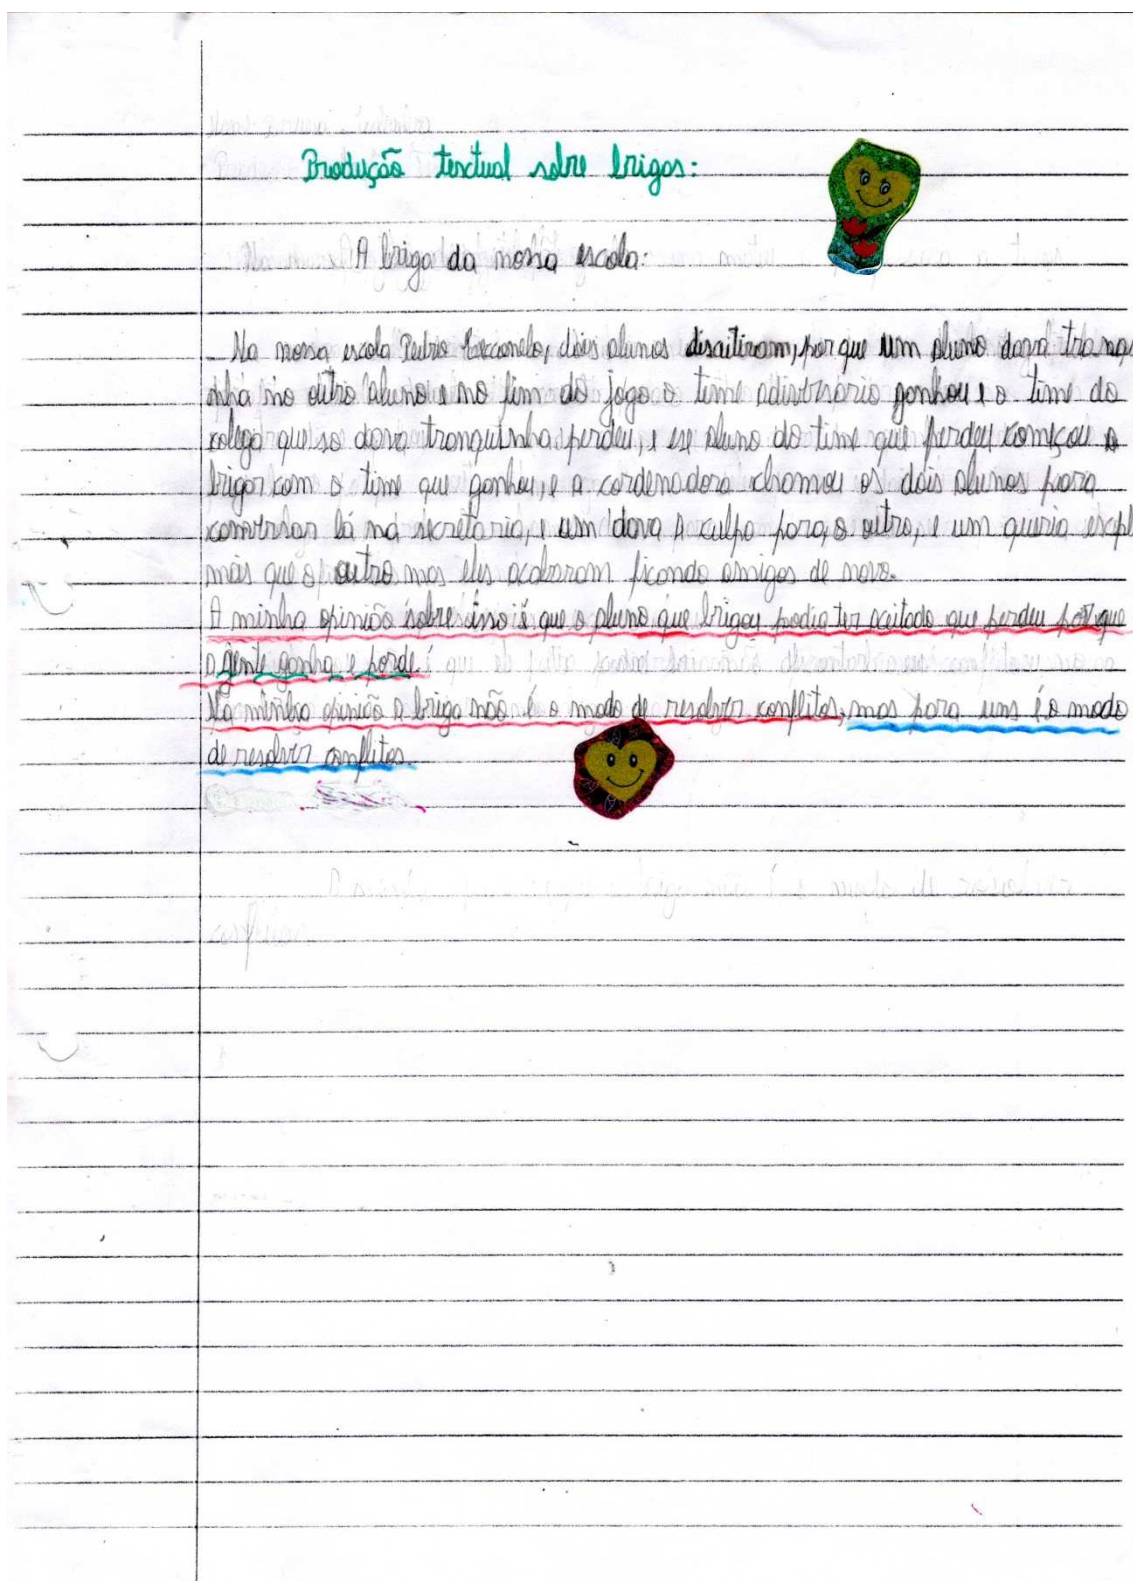 Produção textual sobre brigas:
A briga da nossa escola:
Na nossa escola Pedro, dois alunos discutiram, por que um aluno dava tranqu
inha no outro aluno e no fim do jogo o time adiversário ganhou e o time do
colega que so dava tranquinha perdeu, e ese aluno do time que perdeu começou a
brigar com o time que ganhou, e a cordenadora chamou os dois alunos para
conversar lá na secretaria, e um dava a culpa para o outro, e um queria
mais que o outro mas eles acabaram ficando amigos de novo.
A minha opinião sobre isso é que o aluno que brigou podia ter aceitado que perdeu por que
a gente ganha e perde.
Na minha opinião a briga não é o modo de resolver conflitos, mas para uns é o modo
de resolver conflitos.